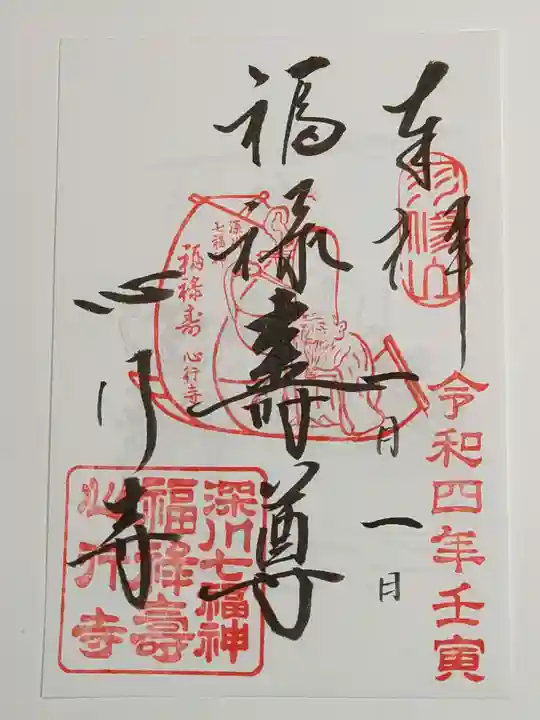 奉拝
令和四年壬寅
一月一日
福禄寿尊
心行寺
深川
七福
福禄寿 心行寺
深川七福神
福禄壽
心行寺